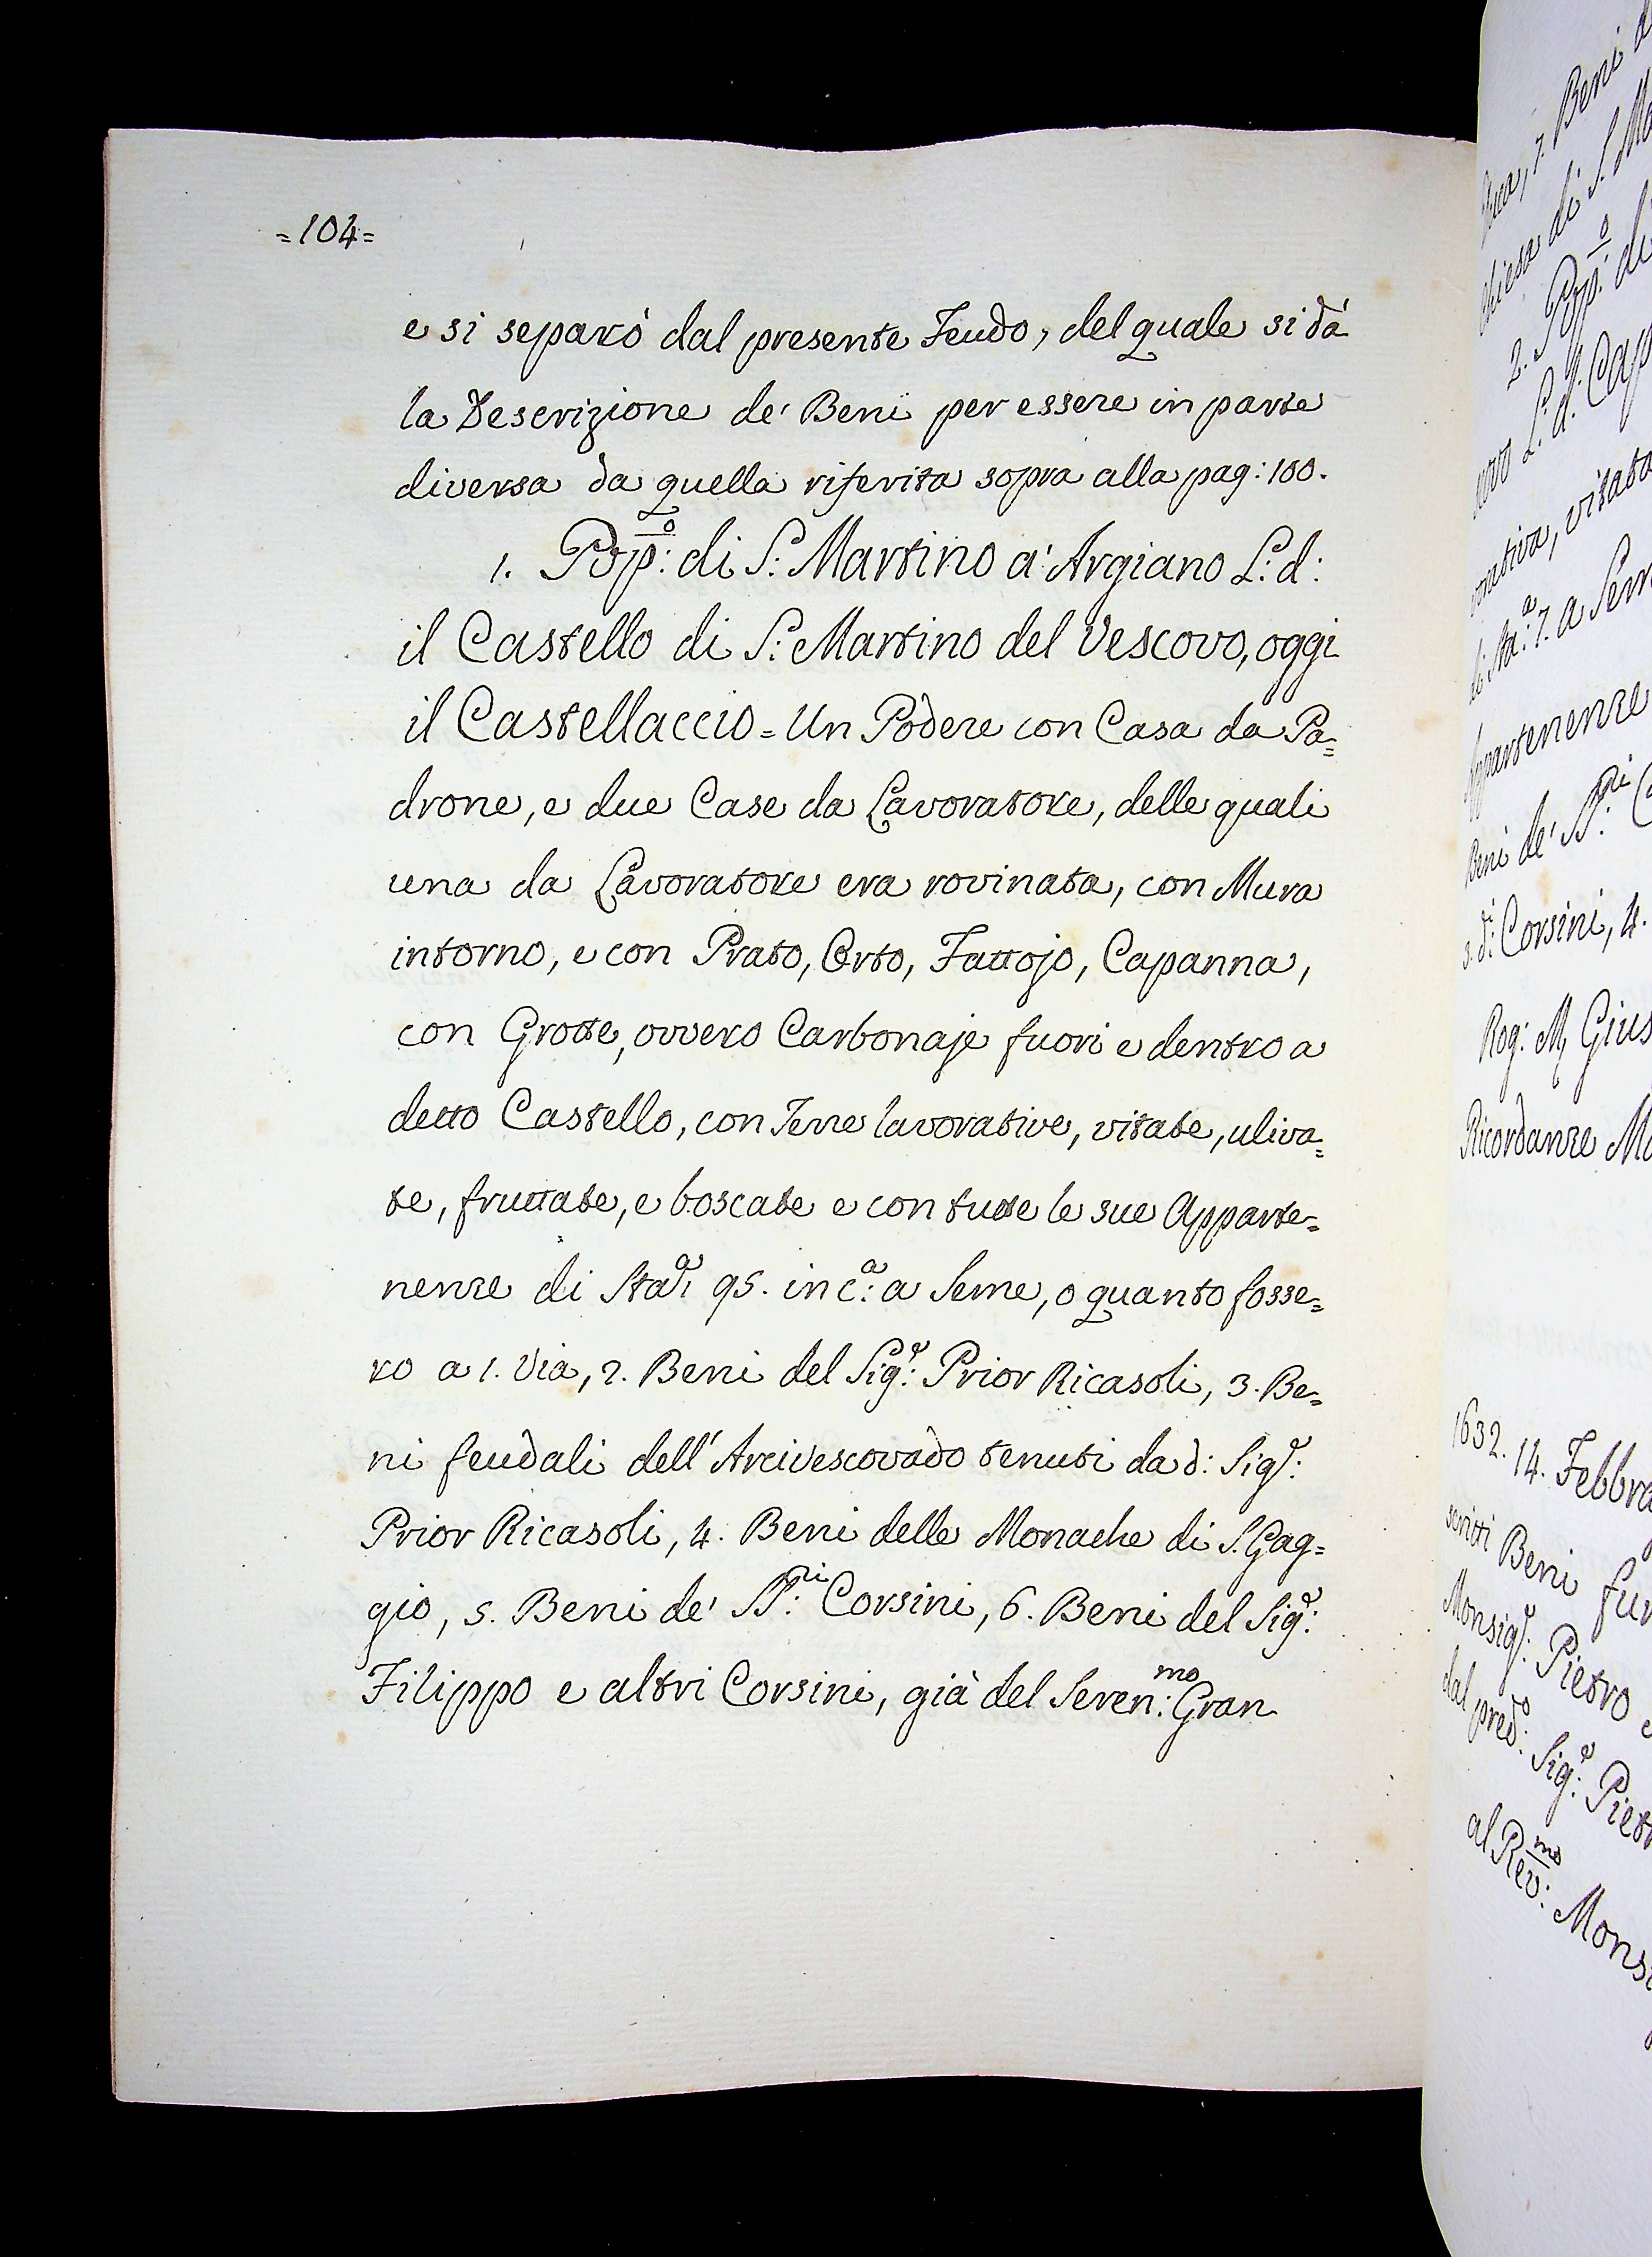 =104=
e si separò dal presente Feudo, del quale si dà
la Descrizione de' Beni per essere in parte
diversa da quella riferita sopra alla pag: 100.
1. Pop:º di S: Martino a' Argiano L: d:
il Castello di S: Martino del Vescovo, oggi
il Castellaccio = Un Podere con Casa da Pa=
drone, e due Case da Lavoratore, delle quali
una da Lavoratore era rovinata, con Mura
intorno, e con Prato, Orto, Fattojo, Capanna,
con Grotte, ovvero Carbonaje fuori e dentro a
detto Castello, con Terre lavorative, vitate, uliva=
te, fruttate, e boscate e con tutte le sue Apparte=
nenze di Sta:ª 95. in c:ª a Seme, o quanto fosse=
ro a 1. Via, 2. Beni del Sig:e Prior Ricasoli, 3. Be=
ni feudali dell' Arcivescovado tenuti da d: Sig:e
Prior Ricasoli, 4. Beni delle Monache di S. Gag=
gio, 5. Beni de' SS:ri Corsini, 6. Beni del Sig:e
Filippo e altri Corsini, già del Seren:mo Gran
7. Beni
chiesa di S. Ma
2. Pop:º di
L: d: Cap
vitata
di Sta:ª 7. a Sem
Appartenenze
Beni de' SS:ri
3. di Corsini, 4.
Rog: M Gius
Ricordanze Ma
1632. 14. Febbra
scritti Beni fur
Monsig:e Pietro
dal pred:o Sig:e Piet
al Rev:mo Mons